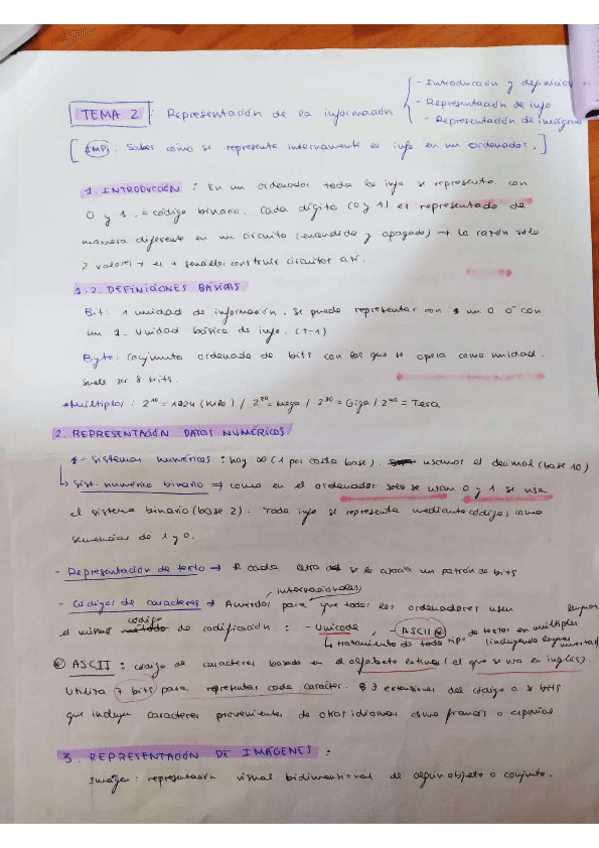 - Introducción y definición
TEMA 2: Representación de la información
- Representación de info
- Representación de imágenes
[IMP: Saber cómo se representa internamente la info en un ordenador.]
1. INTRODUCCIÓN: En un ordenador toda la info se representa con
0 y 1 = código binario. Cada dígito (0 y 1) es representado de
manera diferente en un circuito (encendido y apagado) → la razón solo
2 valores → es + sencillo construir circuitos así.
1.2. DEFINICIONES BÁSICAS
Bit: 1 unidad de información. Se puede representar con un 0 o con
un 1. Unidad básica de info.
Byte: Conjunto ordenado de bits con los que se opera como unidad.
suele ser 8 bits.
*Múltiplos: 2^10 = 1024 (Kilo) / 2^20 = Mega / 2^30 = Giga / 2^40 = Tera
2. REPRESENTACIÓN DATOS NUMÉRICOS
- Sistemas numéricos: hay ∞ (1 por cada base). usamos el decimal (base 10)
↳ Sist. numérico binario → como en el ordenador solo se usan 0 y 1 se usa
el sistema binario (base 2). Toda info se representa mediante códigos como
secuencias de 1 y 0.
- Representación de texto → A cada letra se le asocia un patrón de bits
internacionales
- Códigos de caracteres → Acuerdos para que todos los ordenadores usen
el mismo código de codificación: - Unicode, - ASCII
↳ tratamiento de todo tipo de textos en múltiples lenguas
(incluyendo lenguas muertas)
ASCII: código de caracteres basado en el alfabeto latino (el que se usa en inglés)
Utiliza 7 bits para representar cada carácter. extensiones del código a 8 bits
que incluyen caracteres provenientes de otros idiomas como francés o español
3. REPRESENTACIÓN DE IMÁGENES:
Imagen: representación visual bidimensional de algún objeto o conjunto.